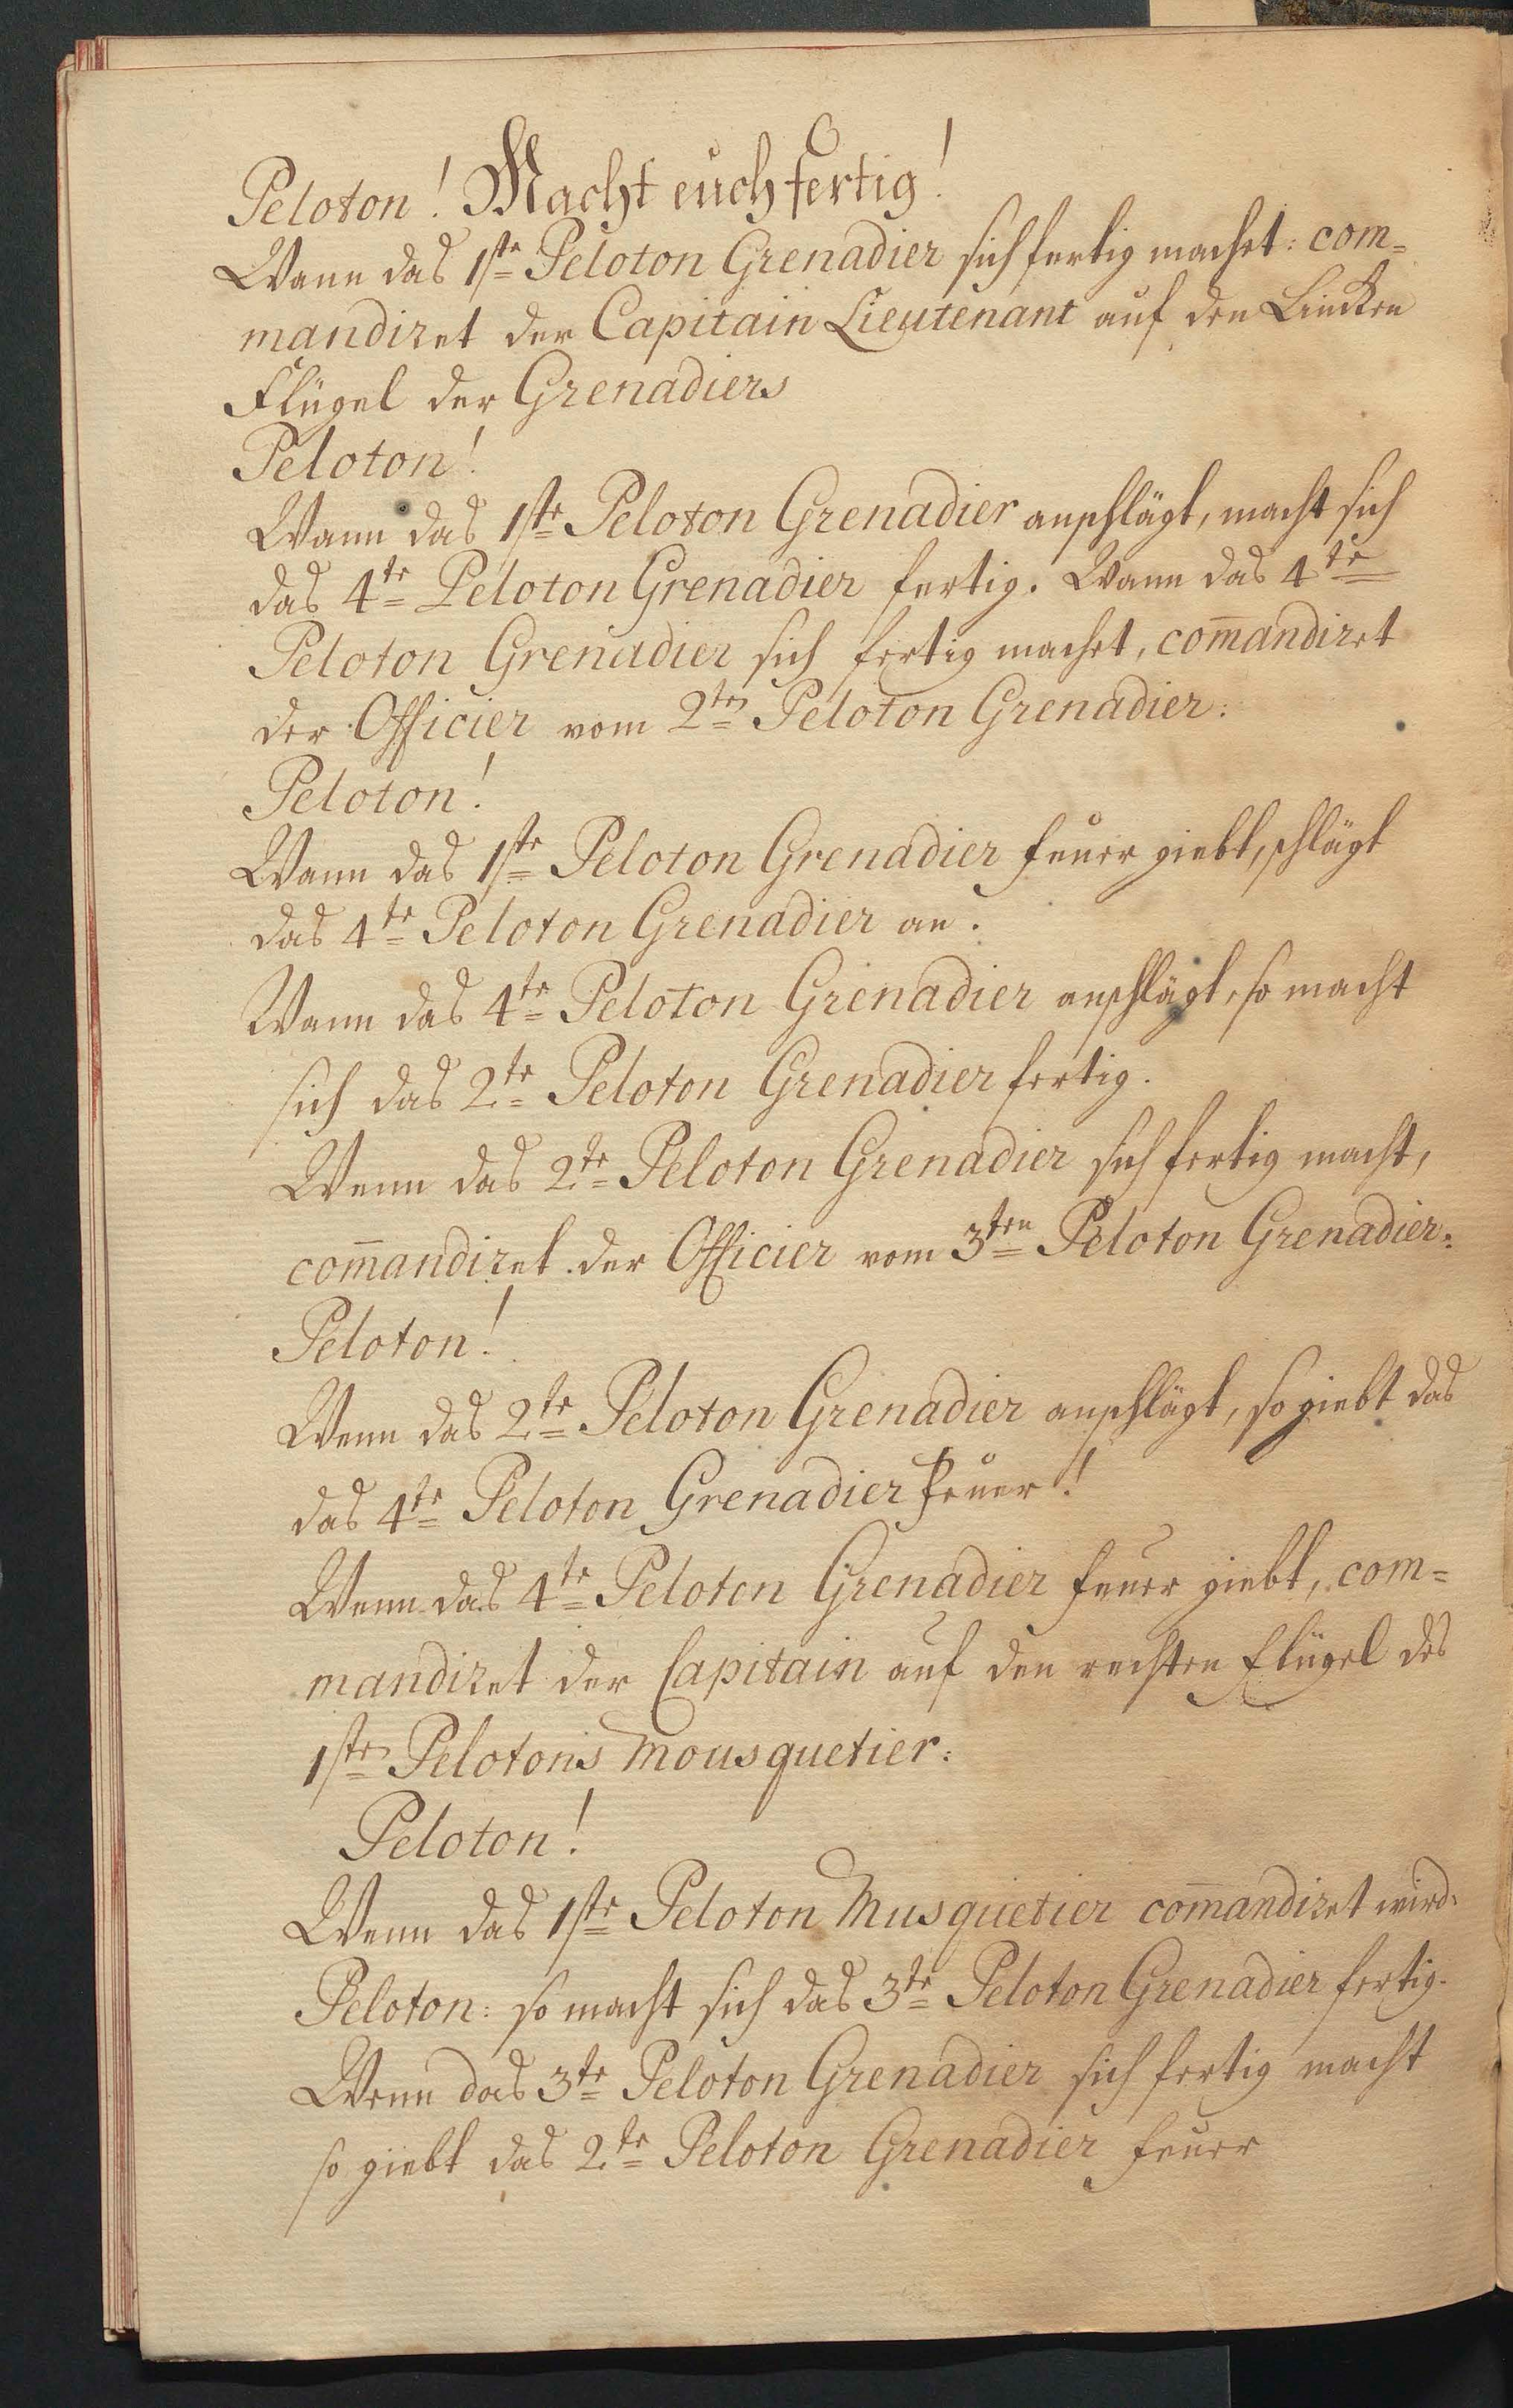 Peloton! Macht euch fertig!
Wann das 1ste Peloton Grenadier sich fertig machet: com=
mandiret der Capitain Lieutenant auf den Lincken
Flügel der Grenadiers
Peloton!
Wann das 1ste Peloton Grenadier anschlägt, macht sich
das 4te Peloton Grenadier fertig. Wann das 4te
Peloton Grenadier sich fertig machet, com̄andiret
der Officier vom 2ten Peloton Grenadier:
Peloton!
Wann das 1ste Peloton Grenadier feuer giebt, schlägt
das 4te Peloton Grenadier an.
Wann das 4te Peloton Grenadier anschlägt, so macht
sich das 2te Peloton Grenadier fertig.
Wenn das 2te Peloton Grenadier sich fertig macht,
com̄andiret der Officier vom 3ten Peloton Grenadier:
Peloton!
Wenn das 2te Peloton Grenadier anschlägt, so giebt das
das 4te Peloton Grenadier feuer!
Wenn das 4te Peloton Grenadier feuer giebt, com=
mandiret der Capitain auf den rechten Flügel des
1sten Pelotons Mousquetier:
Peloton!
Wenn das 1ste Peloton Musquetier com̄andiret wird:
Peloton: so macht sich das 3te Peloton Grenadier fertig.
Wenn das 3te Peloton Grenadier sich fertig macht
so giebt das 2te Peloton Grenadier feuer